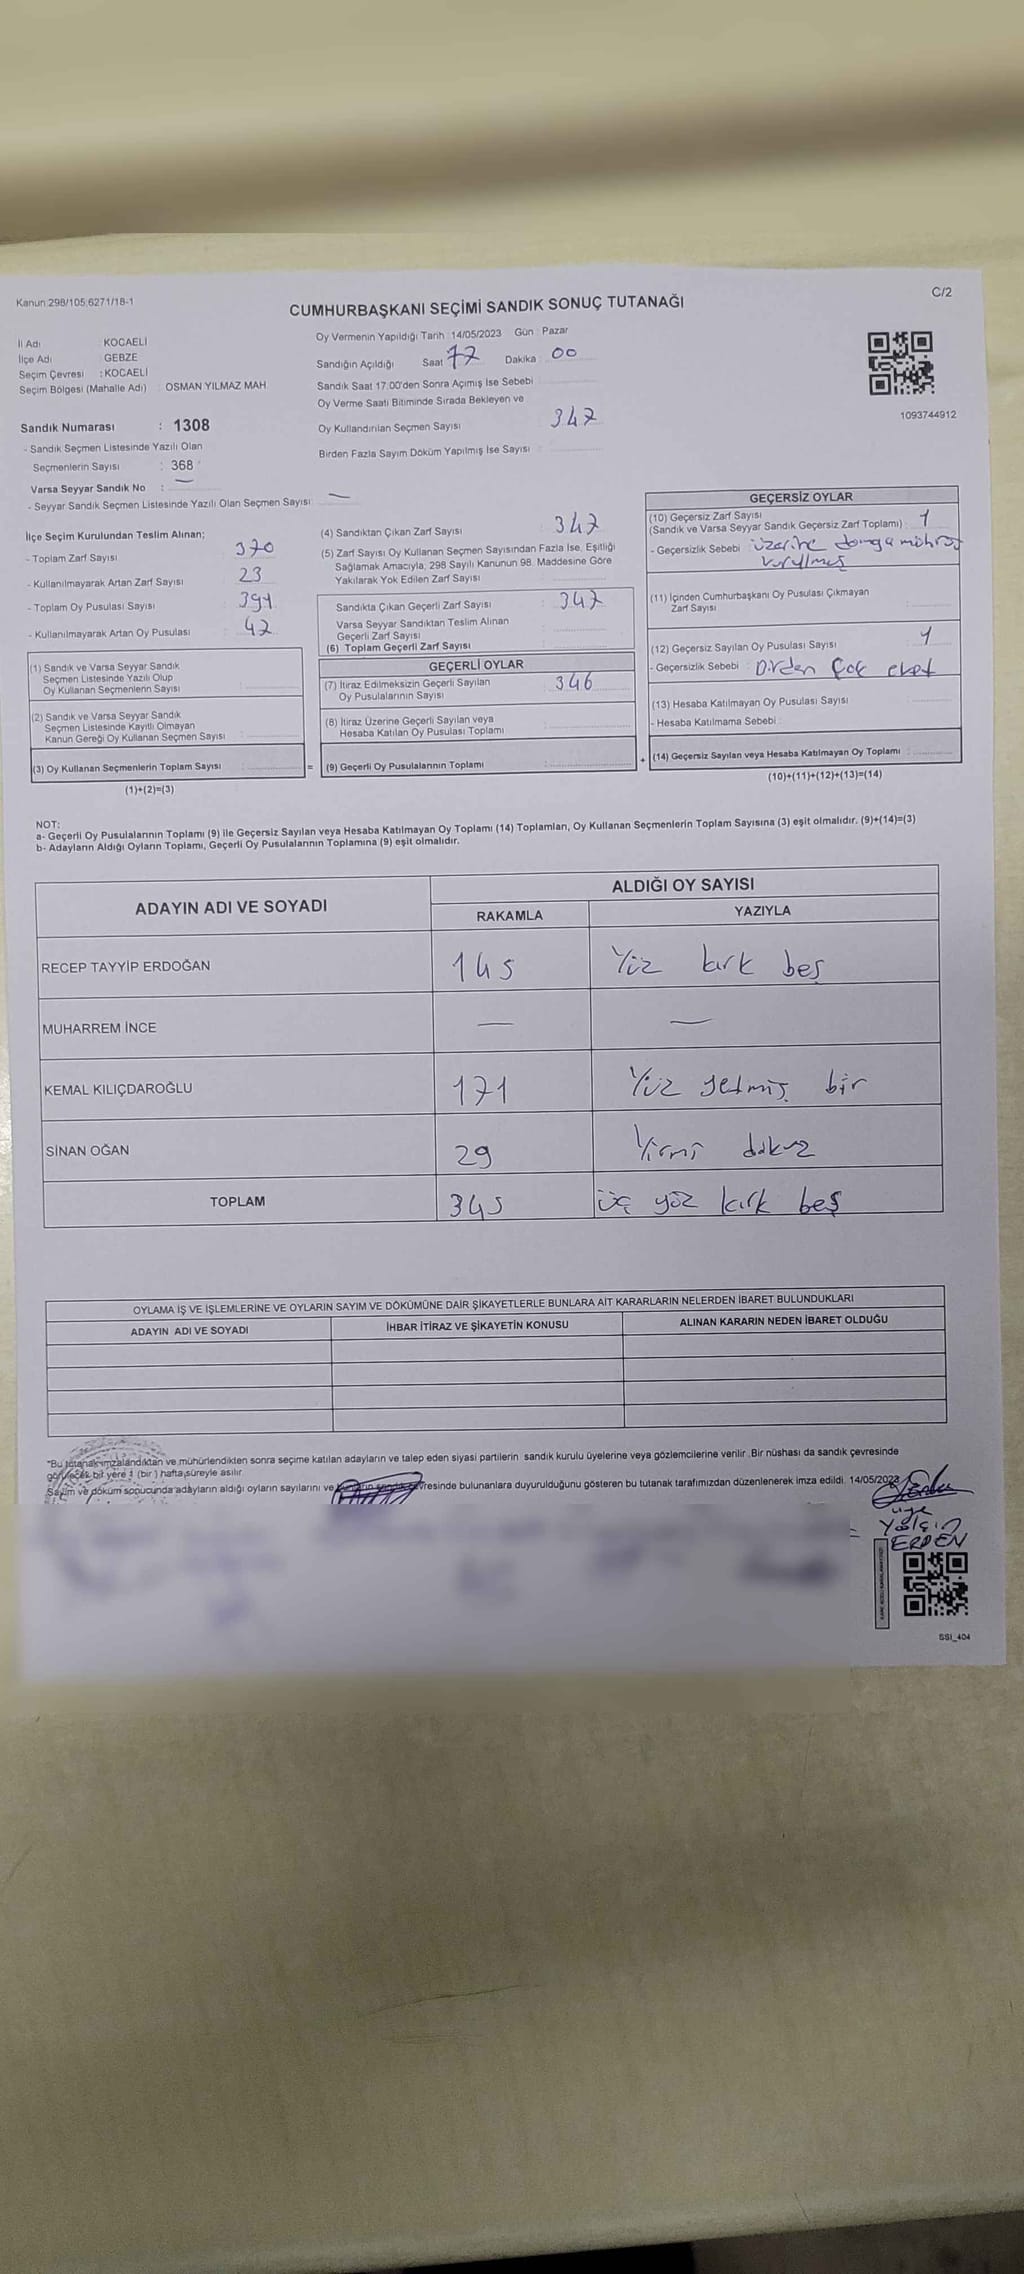 Kanun:298/105;6271/18-1
C/2
CUMHURBAŞKANI SEÇİMİ SANDIK SONUÇ TUTANAĞI
İl Adı : KOCAELİ
İlçe Adı : GEBZE
Seçim Çevresi : KOCAELİ
Seçim Bölgesi (Mahalle Adı) : OSMAN YILMAZ MAH.
Oy Vermenin Yapıldığı Tarih : 14/05/2023 Gün : Pazar
Sandığın Açıldığı Saat 17 Dakika : 00
Sandık Saat 17:00'den Sonra Açımış İse Sebebi :
Oy Verme Saati Bitiminde Sırada Bekleyen ve
Oy Kullandırılan Seçmen Sayısı : 347
Birden Fazla Sayım Döküm Yapılmış İse Sayısı :
1093744912
Sandık Numarası : 1308
- Sandık Seçmen Listesinde Yazılı Olan
Seçmenlerin Sayısı : 368
Varsa Seyyar Sandık No : —
- Seyyar Sandık Seçmen Listesinde Yazılı Olan Seçmen Sayısı: —
İlçe Seçim Kurulundan Teslim Alınan;
- Toplam Zarf Sayısı : 370
- Kullanılmayarak Artan Zarf Sayısı : 23
- Toplam Oy Pusulası Sayısı :
- Kullanılmayarak Artan Oy Pusulası : 42
(1) Sandık ve Varsa Seyyar Sandık
Seçmen Listesinde Yazılı Olup
Oy Kullanan Seçmenlerin Sayısı :
(2) Sandık ve Varsa Seyyar Sandık
Seçmen Listesinde Kayıtlı Olmayan
Kanun Gereği Oy Kullanan Seçmen Sayısı :
(3) Oy Kullanan Seçmenlerin Toplam Sayısı :
(1)+(2)=(3)
=
(4) Sandıktan Çıkan Zarf Sayısı : 347
(5) Zarf Sayısı Oy Kullanan Seçmen Sayısından Fazla İse, Eşitliği
Sağlamak Amacıyla; 298 Sayılı Kanunun 98. Maddesine Göre
Yakılarak Yok Edilen Zarf Sayısı :
Sandıkta Çıkan Geçerli Zarf Sayısı : 347
Varsa Seyyar Sandıktan Teslim Alınan
Geçerli Zarf Sayısı :
(6) Toplam Geçerli Zarf Sayısı :
GEÇERLİ OYLAR
(7) İtiraz Edilmeksizin Geçerli Sayılan
Oy Pusulalarının Sayısı : 346
(8) İtiraz Üzerine Geçerli Sayılan veya
Hesaba Katılan Oy Pusulası Toplamı :
(9) Geçerli Oy Pusulalarının Toplamı :
+
GEÇERSİZ OYLAR
(10) Geçersiz Zarf Sayısı
(Sandık ve Varsa Seyyar Sandık Geçersiz Zarf Toplamı) : 1
- Geçersizlik Sebebi : üzerine damga mührü
vurulmuş
(11) İçinden Cumhurbaşkanı Oy Pusulası Çıkmayan
Zarf Sayısı :
(12) Geçersiz Sayılan Oy Pusulası Sayısı : 1
- Geçersizlik Sebebi : Birden çok evet
(13) Hesaba Katılmayan Oy Pusulası Sayısı :
- Hesaba Katılmama Sebebi :
(14) Geçersiz Sayılan veya Hesaba Katılmayan Oy Toplamı :
(10)+(11)+(12)+(13)=(14)
NOT:
a- Geçerli Oy Pusulalarının Toplamı (9) ile Geçersiz Sayılan veya Hesaba Katılmayan Oy Toplamı (14) Toplamları, Oy Kullanan Seçmenlerin Toplam Sayısına (3) eşit olmalıdır. (9)+(14)=(3)
b- Adayların Aldığı Oyların Toplamı, Geçerli Oy Pusulalarının Toplamına (9) eşit olmalıdır.
ADAYIN ADI VE SOYADI
ALDIĞI OY SAYISI
RAKAMLA
YAZIYLA
RECEP TAYYİP ERDOĞAN 145 Yüz kırk beş
MUHARREM İNCE — —
KEMAL KILIÇDAROĞLU 171 Yüz yetmiş bir
SİNAN OĞAN 29 Yirmi dokuz
TOPLAM 345 üç yüz kırk beş
OYLAMA İŞ VE İŞLEMLERİNE VE OYLARIN SAYIM VE DÖKÜMÜNE DAİR ŞİKAYETLERLE BUNLARA AİT KARARLARIN NELERDEN İBARET BULUNDUKLARI
ADAYIN ADI VE SOYADI
İHBAR İTİRAZ VE ŞİKAYETİN KONUSU
ALINAN KARARIN NEDEN İBARET OLDUĞU
"Bu tutanak imzalandıktan ve mühürlendikten sonra seçime katılan adayların ve talep eden siyasi partilerin sandık kurulu üyelerine veya gözlemcilerine verilir. Bir nüshası da sandık çevresinde
görülecek bir yere 1 (bir) hafta süreyle asılır.
Sayım ve döküm sonucunda adayların aldığı oyların sayılarını ve çevresinde bulunanlara duyurulduğunu gösteren bu tutanak tarafımızdan düzenlenerek imza edildi. 14/05/2023
üye
Yalçın
ERDEN
SSI_404